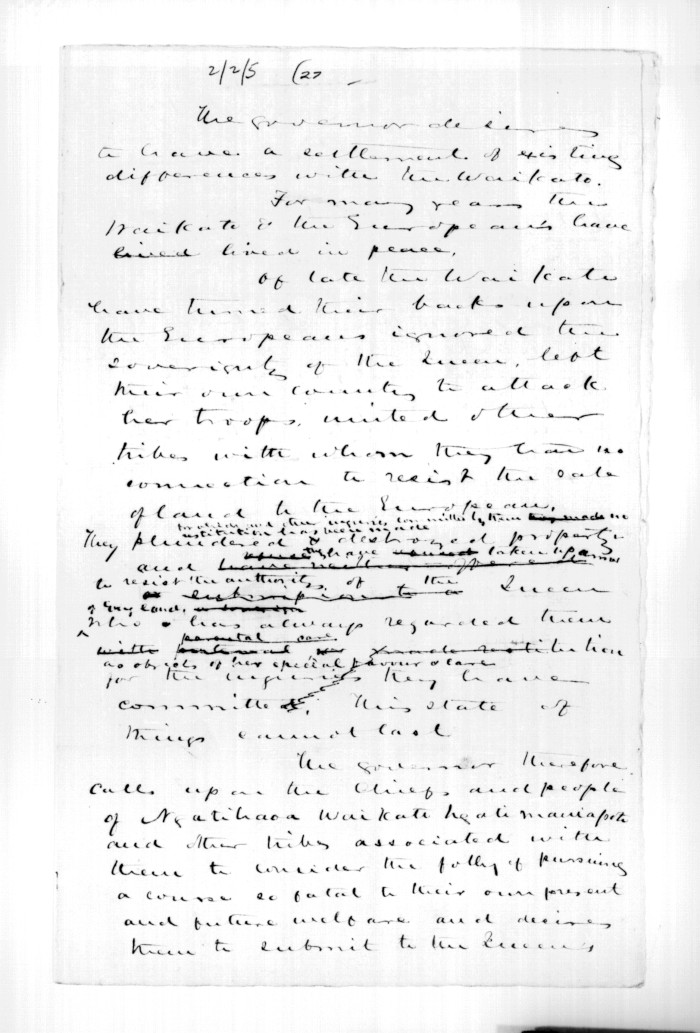 2/2/5 (27
The governor desires
to have a settlement of existing
differences with the Waikato.
For many years the
Waikato & the Europeans have
lived lived in peace.
Of late the Waikato
have turned their backs upon
the Europeans ignored the
sovereignty of the Queen, left
their own country to attack
her troops, united other
tribes with whom they have no
connection to resist the sale
of land to the Europeans.
for the injuries committed by them has made no
restitution has been made
They plundered & destroyed property
and have taken up arms
to resist the authority of the Queen
of England,
who has always regarded them
parental care
with made restitution
as objects of her special favour & care
for the injuries they have
committed. This state of
things cannot last
The governor therefore
calls upon the Chiefs and people
of Ngatihaoa Waikato Ngatimaniapoto
and other tribes associated with
them to consider the folly of pursuing
a course so fatal to their own present
and future welfare and desires
them to submit to the Queen's